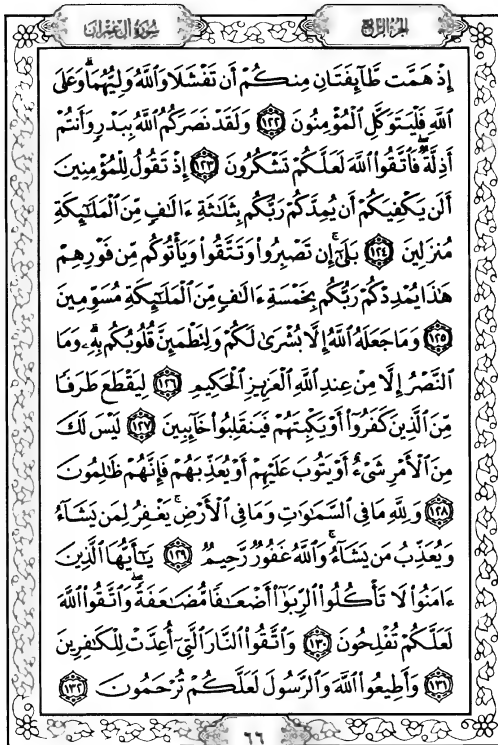 سُورَةُ آلِ عِمْرَانَ
الجُزْءُ الرَّابِعُ
إِذْ هَمَّت طَّآئِفَتَانِ مِنكُمْ أَن تَفْشَلَا وَٱللَّهُ وَلِيُّهُمَا ۗ وَعَلَى
ٱللَّهِ فَلْيَتَوَكَّلِ ٱلْمُؤْمِنُونَ ١٢٢ وَلَقَدْ نَصَرَكُمُ ٱللَّهُ بِبَدْرٍ وَأَنتُمْ
أَذِلَّةٌ ۖ فَٱتَّقُوا۟ ٱللَّهَ لَعَلَّكُمْ تَشْكُرُونَ ١٢٣ إِذْ تَقُولُ لِلْمُؤْمِنِينَ
أَلَن يَكْفِيَكُمْ أَن يُمِدَّكُمْ رَبُّكُم بِثَلَٰثَةِ ءَالَٰفٍ مِّنَ ٱلْمَلَٰٓئِكَةِ
مُنزَلِينَ ١٢٤ بَلَىٰٓ ۚ إِن تَصْبِرُوا۟ وَتَتَّقُوا۟ وَيَأْتُوكُم مِّن فَوْرِهِمْ
هَٰذَا يُمْدِدْكُمْ رَبُّكُم بِخَمْسَةِ ءَالَٰفٍ مِّنَ ٱلْمَلَٰٓئِكَةِ مُسَوِّمِينَ
١٢٥ وَمَا جَعَلَهُ ٱللَّهُ إِلَّا بُشْرَىٰ لَكُمْ وَلِتَطْمَئِنَّ قُلُوبُكُم بِهِۦ ۗ وَمَا
ٱلنَّصْرُ إِلَّا مِنْ عِندِ ٱللَّهِ ٱلْعَزِيزِ ٱلْحَكِيمِ ١٢٦ لِيَقْطَعَ طَرَفًا
مِّنَ ٱلَّذِينَ كَفَرُوٓا۟ أَوْ يَكْبِتَهُمْ فَيَنقَلِبُوا۟ خَآئِبِينَ ١٢٧ لَيْسَ لَكَ
مِنَ ٱلْأَمْرِ شَىْءٌ أَوْ يَتُوبَ عَلَيْهِمْ أَوْ يُعَذِّبَهُمْ فَإِنَّهُمْ ظَٰلِمُونَ
١٢٨ وَلِلَّهِ مَا فِى ٱلسَّمَٰوَٰتِ وَمَا فِى ٱلْأَرْضِ ۚ يَغْفِرُ لِمَن يَشَآءُ
وَيُعَذِّبُ مَن يَشَآءُ ۚ وَٱللَّهُ غَفُورٌ رَّحِيمٌ ١٢٩ يَٰٓأَيُّهَا ٱلَّذِينَ
ءَامَنُوا۟ لَا تَأْكُلُوا۟ ٱلرِّبَوٰٓا۟ أَضْعَٰفًا مُّضَٰعَفَةً ۖ وَٱتَّقُوا۟ ٱللَّهَ
لَعَلَّكُمْ تُفْلِحُونَ ١٣٠ وَٱتَّقُوا۟ ٱلنَّارَ ٱلَّتِىٓ أُعِدَّتْ لِلْكَٰفِرِينَ
١٣١ وَأَطِيعُوا۟ ٱللَّهَ وَٱلرَّسُولَ لَعَلَّكُمْ تُرْحَمُونَ ١٣٢
٦٦